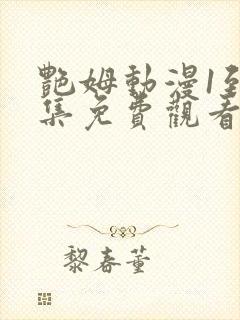 艷姆動漫1至
集免費觀看
黎春董